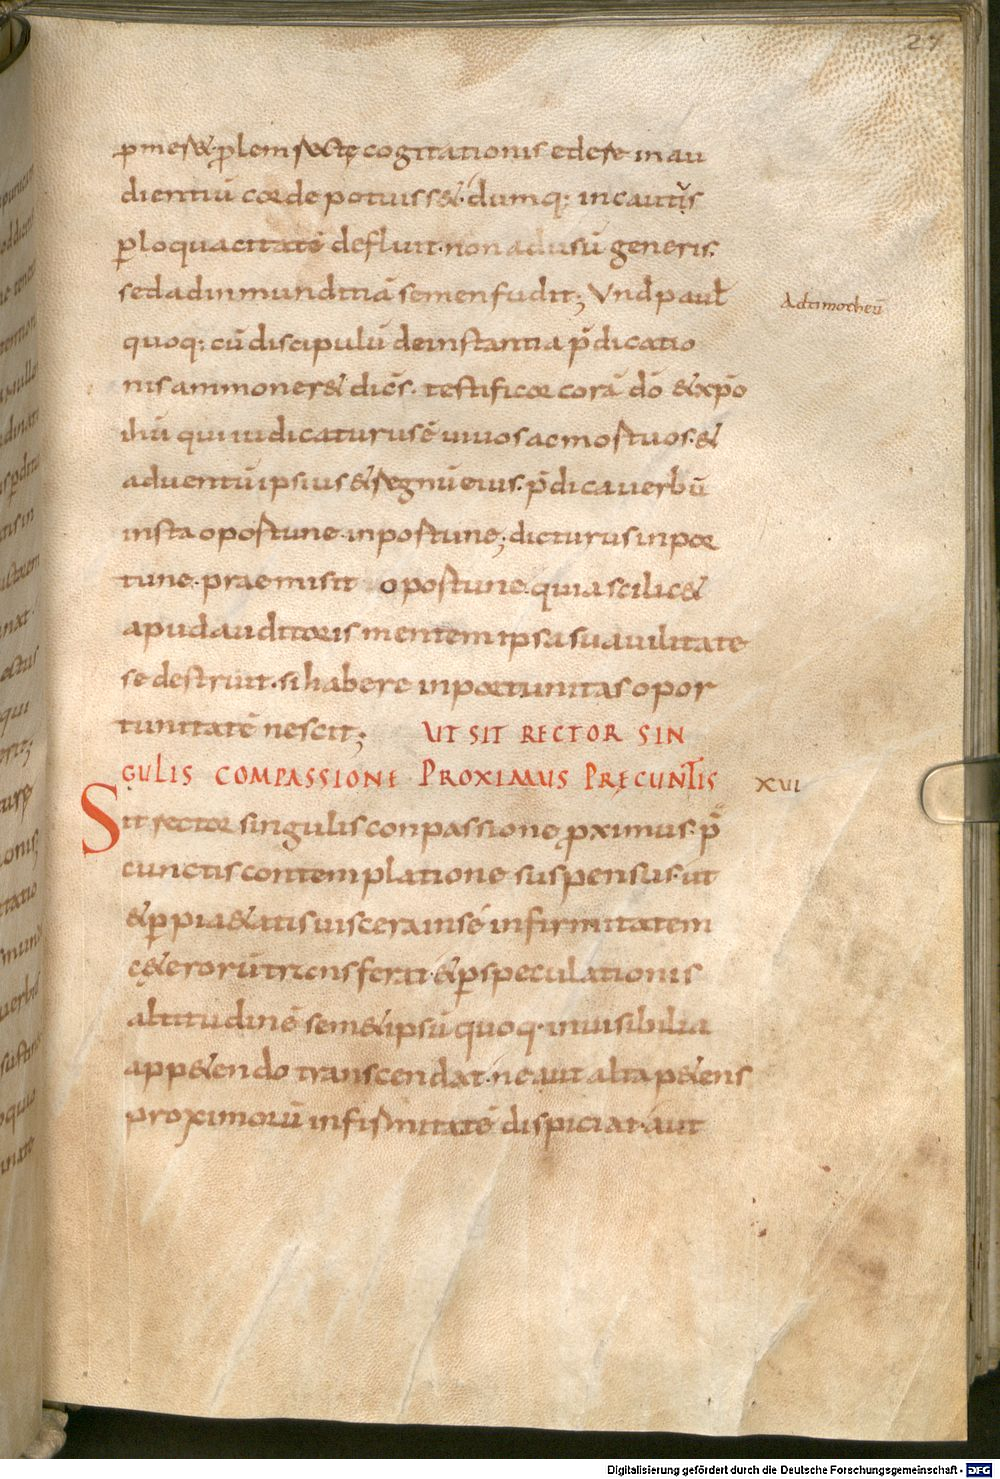 27
ꝓmer&. ꝓlem rectę cogitationis edere in au
dientiū corde potuiss&. dumq; incautus
ꝑ loquacitatē defluit. non ad usū generis.
sed ad inmunditiā semen fudit; Und paul
Ad timotheū
quoq; cū discipulū de instantia p̄dicatio
nis ammoner& dic̄s. testificor corā dō & xp̄o
ihū qui iudicaturus ē uiuos ac mortuos. &
aduentū ipsius & regnū eius. p̄dica uerbū
insta oportune inportune; dicturus inpor
tune. praemisit oportune. quia scilic&
apud auditoris mentem ipsa sua uilitate
se destruit. si habere inportunitas opor
tunitatē nescit; UT SIT RECTOR SIN
GULIS COMPASSIONE PROXIMUS PRĘCUNTIS
XVI
Sit rector singulis conpassione ꝓximus. p̄
cunctis contemplatione suspensus. ut
& ꝑ pi&atis uiscera in sē infirmitatem
c&erorū transferat. & ꝑ speculationis
altitudinē sem&ipsū quoq. inuisibilia
app&endo transcendat. ne aut alta p&ens
proximorū infirmitatē dispiciat. aut
Digitalisierung gefördert durch die Deutsche Forschungsgemeinschaft - DFG